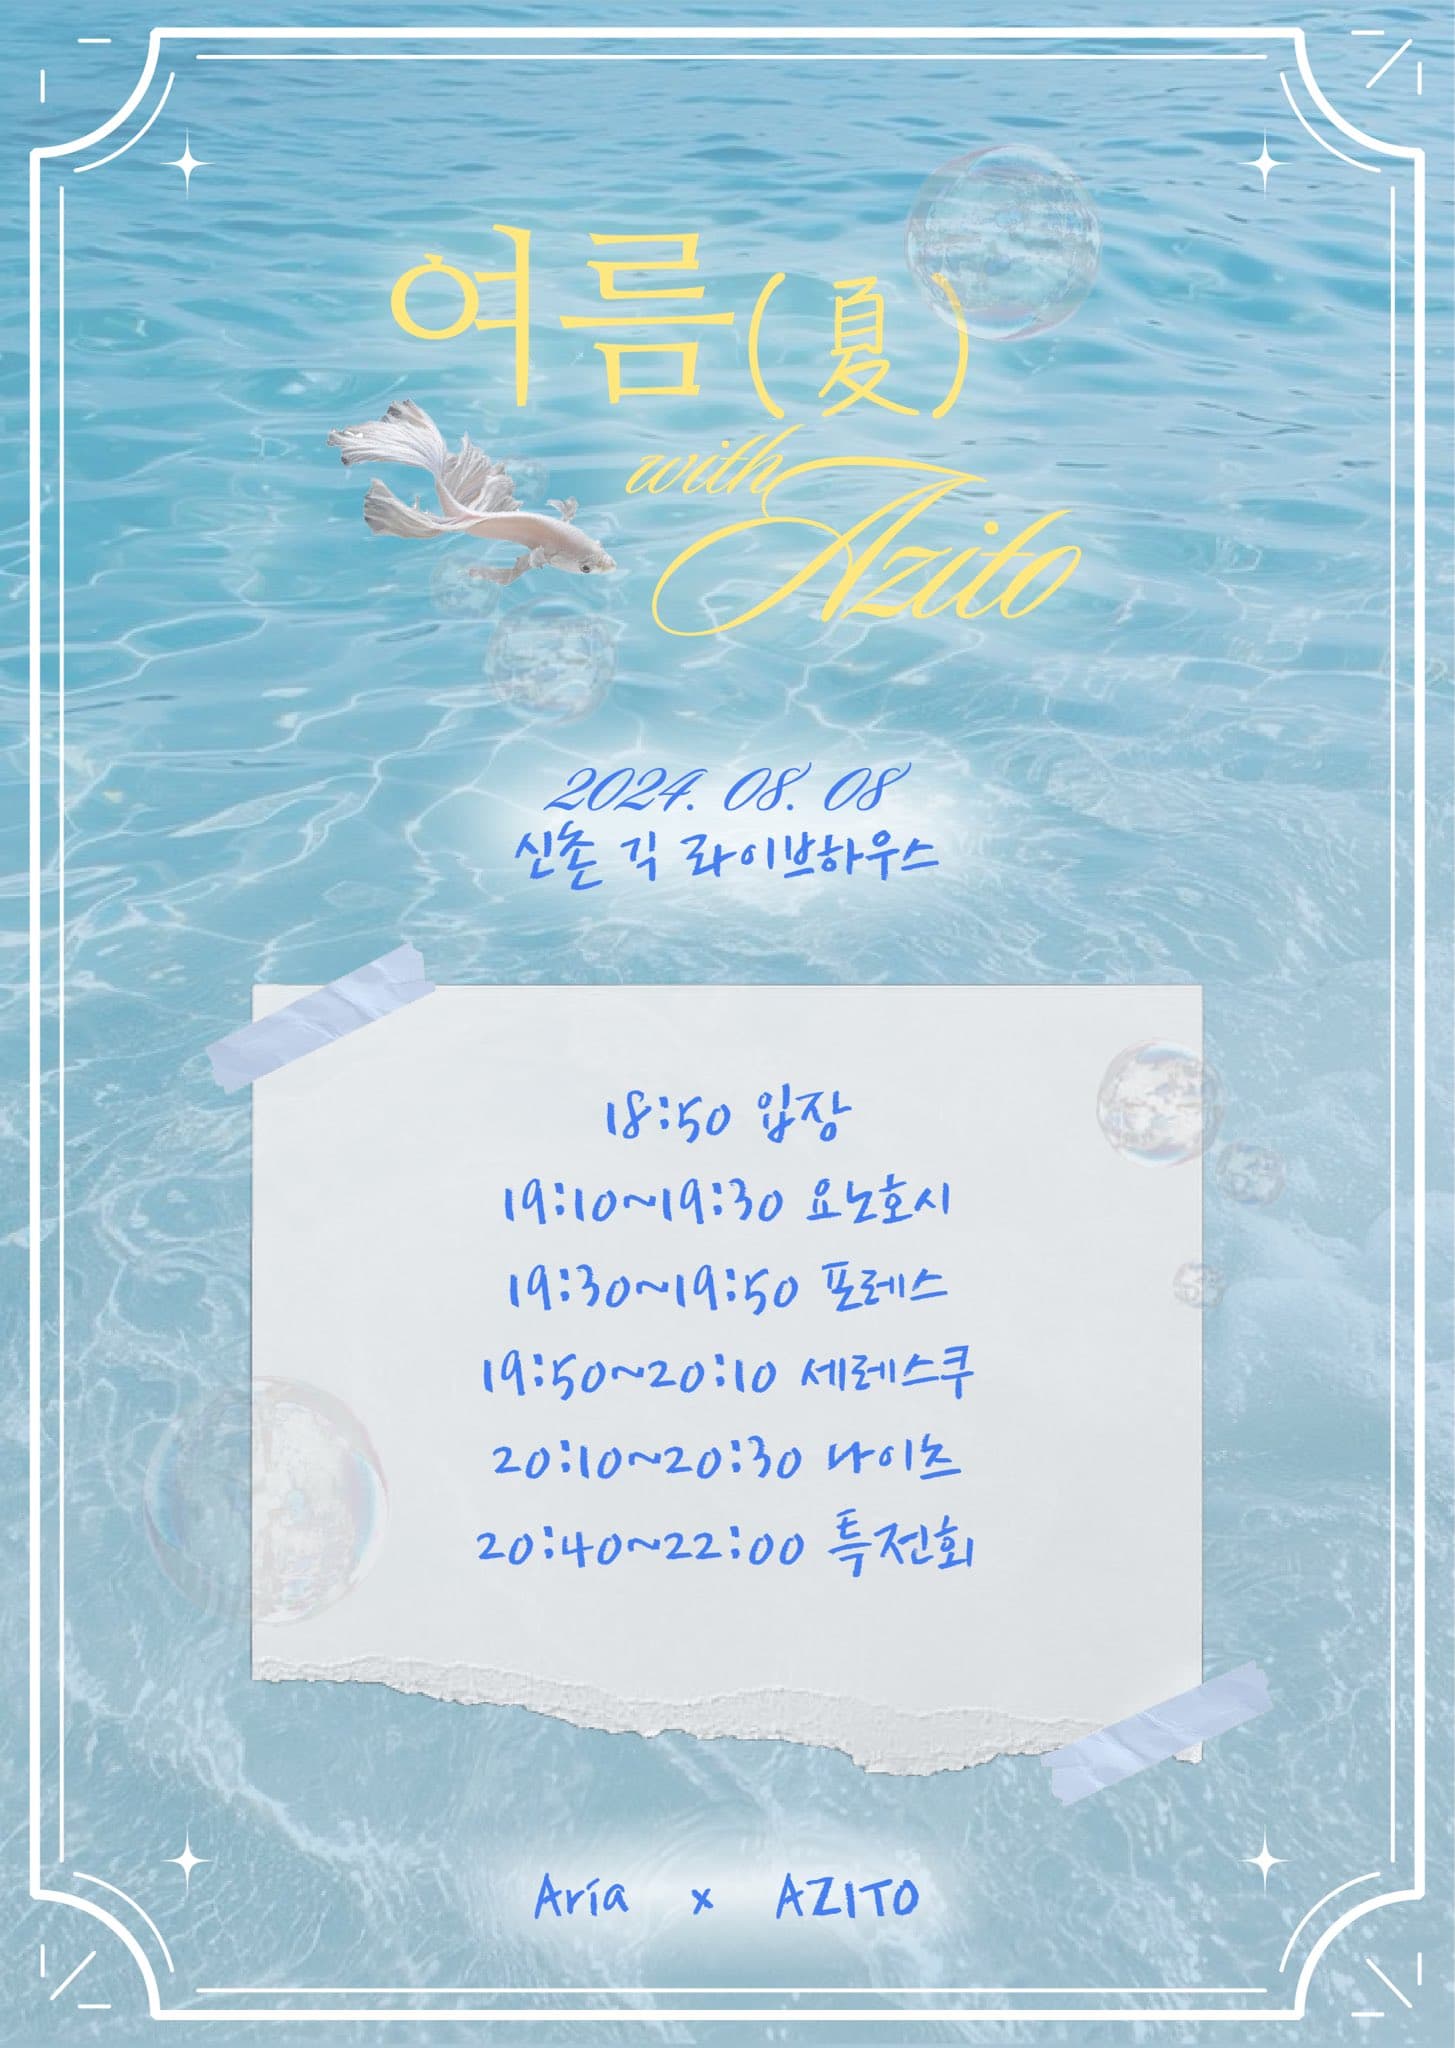 여름(夏)
with
Azito
2024. 08. 08
신촌 긱 라이브하우스
18:50 입장
19:10~19:30 요노호시
19:30~19:50 포레스
19:50~20:10 세레스쿠
20:10~20:30 나이츠
20:40~22:00 특전회
Aria x AZITO